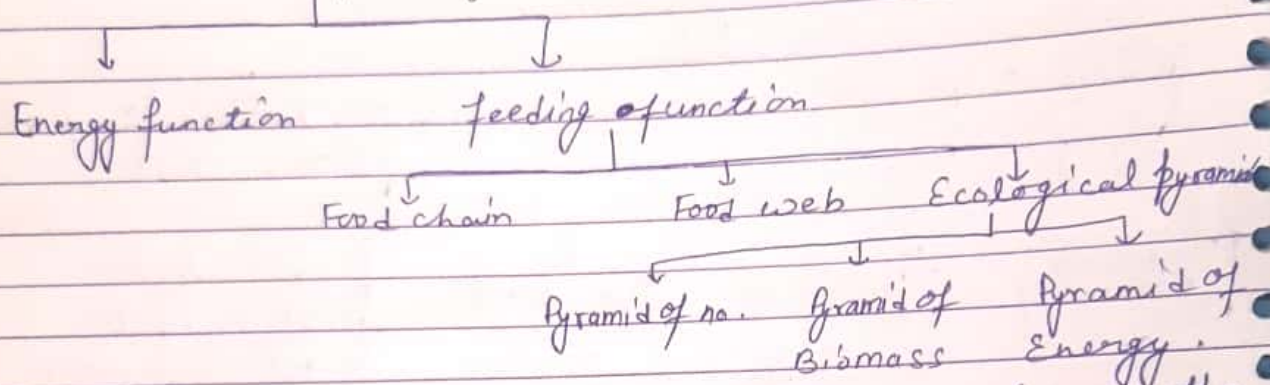 Energy function feeding function
Food chain Food web Ecological pyramid
Pyramid of no. Pyramid of Pyramid of
Biomass Energy.